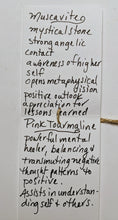 muscavite
mystical stone
strong angelic
contact
awareness of higher
self
opens metaphysical
vision
positive outlook
appreciation for
lessons learned
Pink Tourmaline
powerful mental
healer, balancing &
transmuting negative
thought patterns to
positive.
Assists in understan-
ding self & others.